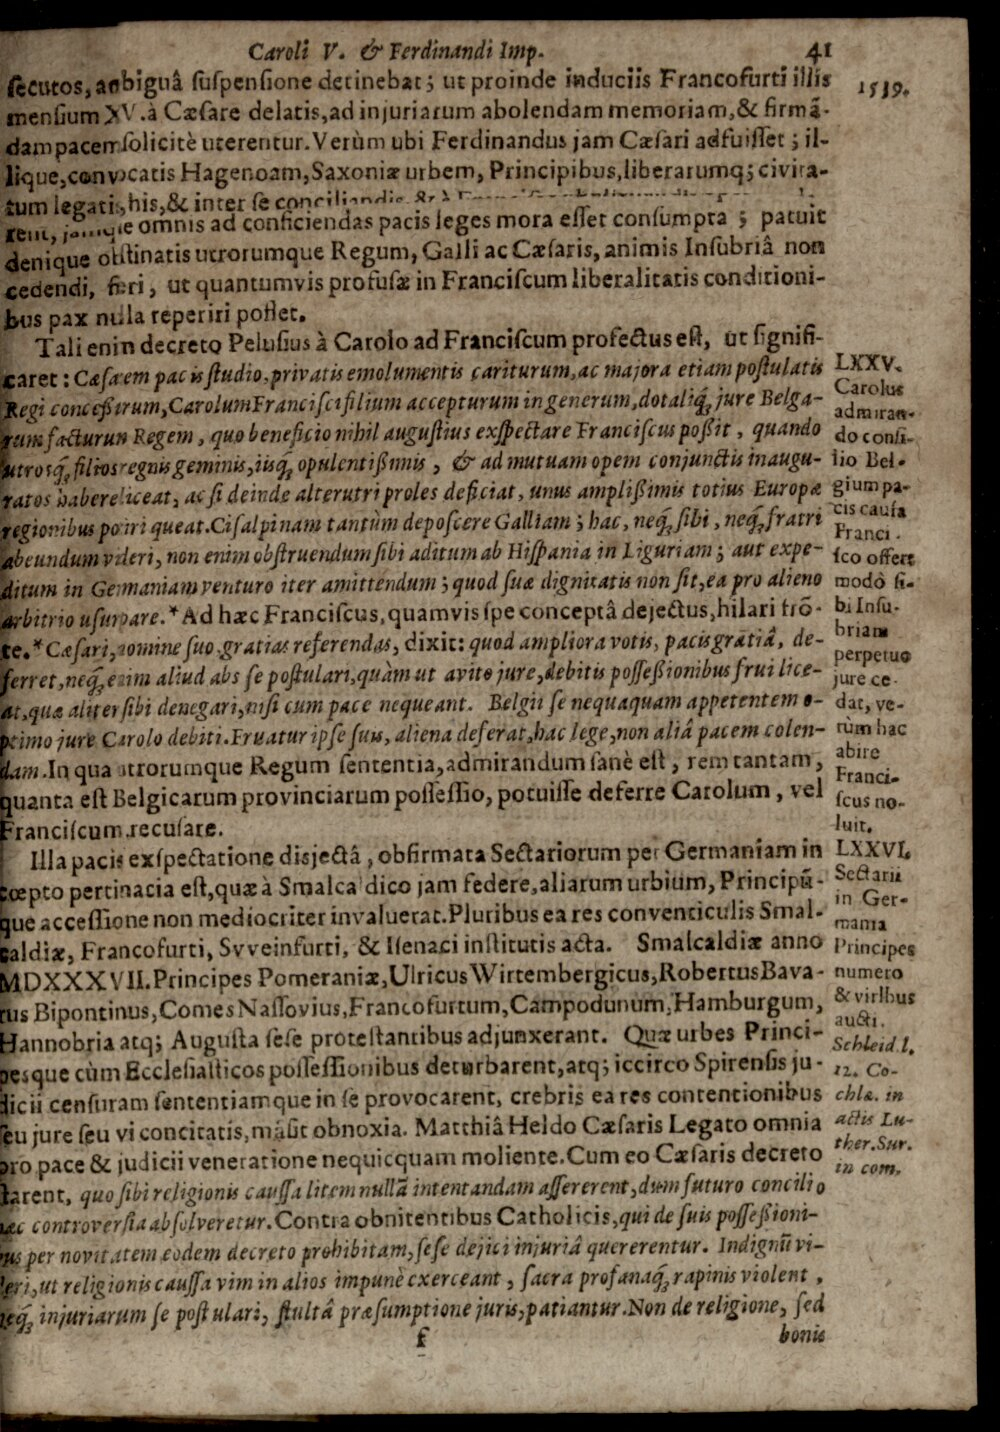 Caroli V. & Ferdinandi Imp. 41
secutos, ambiguâ suspensione detinebat; ut proinde induciis Francofurti illis
1539.
mensium XV. à Cæsare delatis, ad injuriarum abolendam memoriam, & firmā-
dam pacem solicitè uterentur. Verùm ubi Ferdinandus jam Cæsari adfuisset; il-
lique, convocatis Hagenoam, Saxoniæ urbem, Principibus, liberarumq; civita-
tum legatis, his, & inter se
rent, jamque omnis ad conficiendas pacis leges mora esset consumpta; patuit
denique obstinatis utrorumque Regum, Galli ac Cæsaris, animis Insubriâ non
cedendi, fieri, ut quantumvis profusæ in Franciscum liberalitatis conditioni-
bus pax nulla reperiri posset.
Tali enim decreto Pelusius à Carolo ad Franciscum profectus est, ut signifi-
caret: Cæsarem pacis studio, privatis emolumentis cariturum, ac majora etiam postulatis
Regi concessurum, Carolum Francisci filium accepturum in generum, dotaliq; jure Belga-
rum facturum Regem, quo beneficio nihil augustius exspectare Franciscus possit, quando
utrosq; filios regnis geminis, iisq; opulentissimis, & ad mutuam opem conjunctis inaugu-
ratos habere liceat, ac si deinde alterutri proles deficiat, unus amplissimis totius Europæ
regionibus potiri queat. Cisalpinam tantùm deposcere Galliam; hac, neq; sibi, neq; fratri
abeundum videri, non enim obstruendum sibi aditum ab Hispania in Liguriam; aut expe-
ditum in Germaniam venturo iter amittendum; quod suæ dignitatis non sit, ea pro alieno
arbitrio usurpare.* Ad hæc Franciscus, quamvis spe conceptâ dejectus, hilari frō-
te.* Cæsari, nomine suo, gratias referendas, dixit: quod ampliora votis, pacis gratiâ, de-
ferret, neq; enim aliud abs se postulari, quàm ut avito jure, debitis possessionibus frui lice-
at, quæ aliter sibi denegari, nisi cum pace nequeant. Belgii se nequaquam appetentem o-
ptimo jure Carolo debiti. Fruatur ipse suis, aliena deferat, hac lege, non aliâ pacem colen-
dam. In qua utrorumque Regum sententia, admirandum sanè est, rem tantam,
quanta est Belgicarum provinciarum possessio, potuisse deferre Carolum, vel
Franciscum recusare.
LXXV.
Carolus
admiran-
do consi-
lio Bel-
gium pa-
cis causa
Franci-
sco offert
modò si-
bi Insu-
briam
perpetuo
jure ce-
dat, ve-
rùm hac
abire
Franci-
scus no-
luit.
Illa pacis exspectatione disjectâ, obfirmata Sectariorum per Germaniam in
cœpto pertinacia est, quæ à Smalcaldico jam federe, aliarum urbium, Principū-
que accessione non mediocriter invaluerat. Pluribus ea res conventiculis Smal-
caldiæ, Francofurti, Svveinfurti, & Isenaci institutis acta. Smalcaldiæ anno
MDXXXVII. Principes Pomeraniæ, Ulricus Wirtembergicus, Robertus Bava-
rus Bipontinus, Comes Nassovius, Francofurtum, Campodunum, Hamburgum,
Hannobria atq; Augusta sese protestantibus adjunxerant. Quæ urbes Princi-
pesque cùm Ecclesiasticos possessionibus deturbarent, atq; iccirco Spirensis ju-
dicii censuram sententiamque in se provocarent, crebris ea res contentionibus
seu jure seu vi concitatis, māsit obnoxia. Matthiâ Heldo Cæsaris Legato omnia
pro pace & judicii veneratione nequicquam moliente. Cum eo Cæsaris decreto
starent, quo sibi religionis caussa litem nullā intentandam assererent, dum futuro concilio
hæc controversia absolveretur. Contra obnitentibus Catholicis, qui de suis possessioni-
bus per novitatem eodem decreto prohibitam, sese dejici injuriâ quererentur. Indignū vi-
deri, ut religionis caussa vim in alios impunè exerceant, sacra profanaq; rapinis violent,
neq; injuriarum se postulari, stultâ præsumptione juris, patiantur. Non de religione, sed
LXXVI.
Sectarii
in Ger-
mania
Principes
numero
& viribus
aucti.
Schleid. l.
12. Co-
chlæ. in
actis Lu-
ther. Sur.
in com.
f bonis